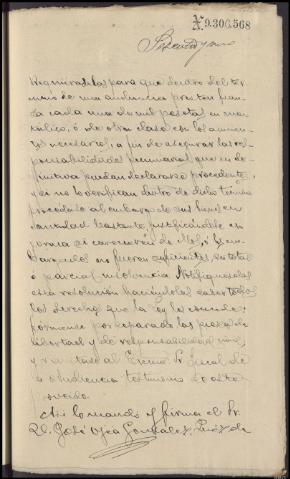 N.9.306.568
Requiraseles para que dentro del ter-
mino de una audiencia presten fian-
za cada una de mil pesetas en me-
talico, ó de otra clase con los aumen-
tos necesarios, a fin de asegurar las res-
ponsabilidades pecuniarias que en de-
finitiva puedan declararse procedentes,
y si no lo verifican dentro de dicho termino
procedase al embargo de sus bienes en
cantidad bastante, justificandose en
forma si carecieren de ellos, ó los em-
bargados no fueren suficientes su total
ó parcial insolvencia. Notifiqueseles
esta resolucion haciendoles saber todos
los derechos que la ley les concede;
formense por separado las piezas de
libertad y de responsabilidad civil
y remitase al Excmo. Sr. Fiscal de
la Audiencia testimonio de este
proveido.
Asi lo mandó y firma el Sr.
D. José Ogea Gonzalez, Juez de